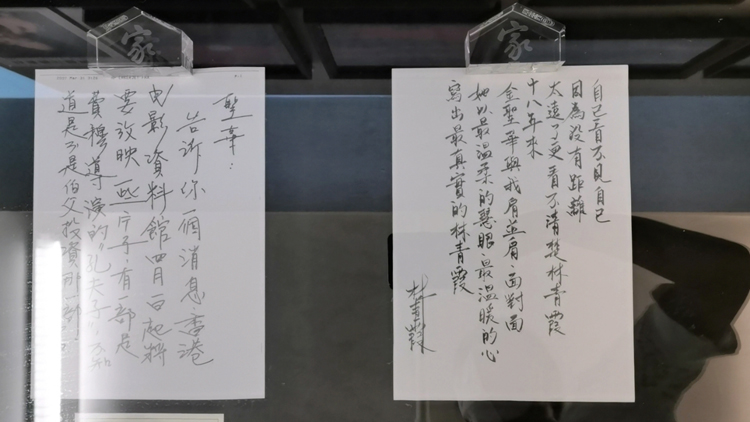 家
家
自己看不見自己
因為沒有距離
太遠了更看不清楚林青霞
十八年來
金聖華與我肩並肩、面對面
她以最溫柔的慧眼、最溫暖的心
寫出最真實的林青霞
林青霞
聖華：
告訴你一個消息，香港
電影資料館四月一日起將
要放映一些片子，有一部是
費穆導演的“孔夫子”，不知
道是不是伯父投資那一部？